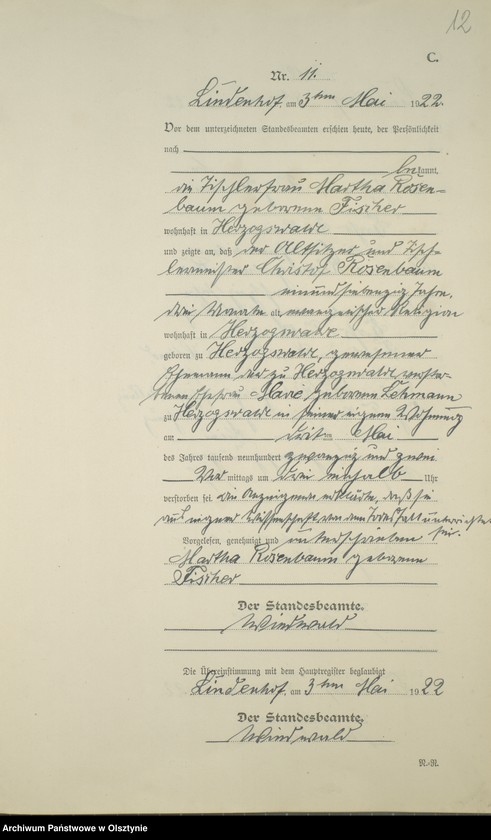 12
C.
Nr. 11.
Lindenhof, am 3ten Mai 1922.
Vor dem unterzeichneten Standesbeamten erschien heute, der Persönlichkeit
nach
bekannt,
die Tischlerfrau Martha Rosen-
baum geborene Fischer
wohnhaft in Herzogswalde
und zeigte an, daß der Altsitzer und Tisch-
lermeister Christof Rosenbaum
einundsiebenzig Jahre,
drei Monate alt, evangelischer Religion
wohnhaft in Herzogswalde
geboren zu Herzogswalde, gewesener
Ehemann der zu Herzogswalde verstor-
benen Ehefrau Marie geborenen Lehmann
zu Herzogswalde in seiner eigenen Wohnung
am dritten Mai
des Jahres tausend neunhundert zwanzig und zwei
Vor mittags um drei einhalb Uhr
verstorben sei. Die Anzeigende erklärte, daß sie
aus eigener Wissenschaft von dem Todesfall unterrichtet
sei.
Vorgelesen, genehmigt und unterschrieben
Martha Rosenbaum geborene
Fischer
Der Standesbeamte.
Windwald
Die Übereinstimmung mit dem Hauptregister beglaubigt
Lindenhof, am 3ten Mai 1922
Der Standesbeamte.
Windwald
N.-R.
Archiwum Państwowe w Olsztynie